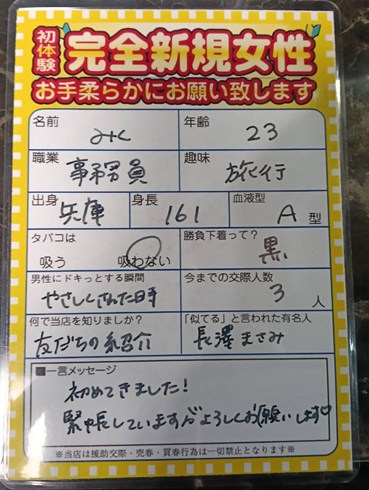 初体験
完全新規女性
お手柔らかにお願い致します
名前 みく 年齢 23
職業 事務員 趣味 旅行
出身 兵庫 身長 161 血液型 A 型
タバコは 吸う 吸わない 勝負下着って? 黒
男性にドキっとする瞬間 やさしくされた時 今までの交際人数 3 人
何で当店を知りましたか? 友だちの紹介 「似てる」と言われた有名人 長澤まさみ
■一言メッセージ
初めてきました!
緊張していますがよろしくお願いします♡
※当店は援助交際・売春・買春行為は一切禁止となります※